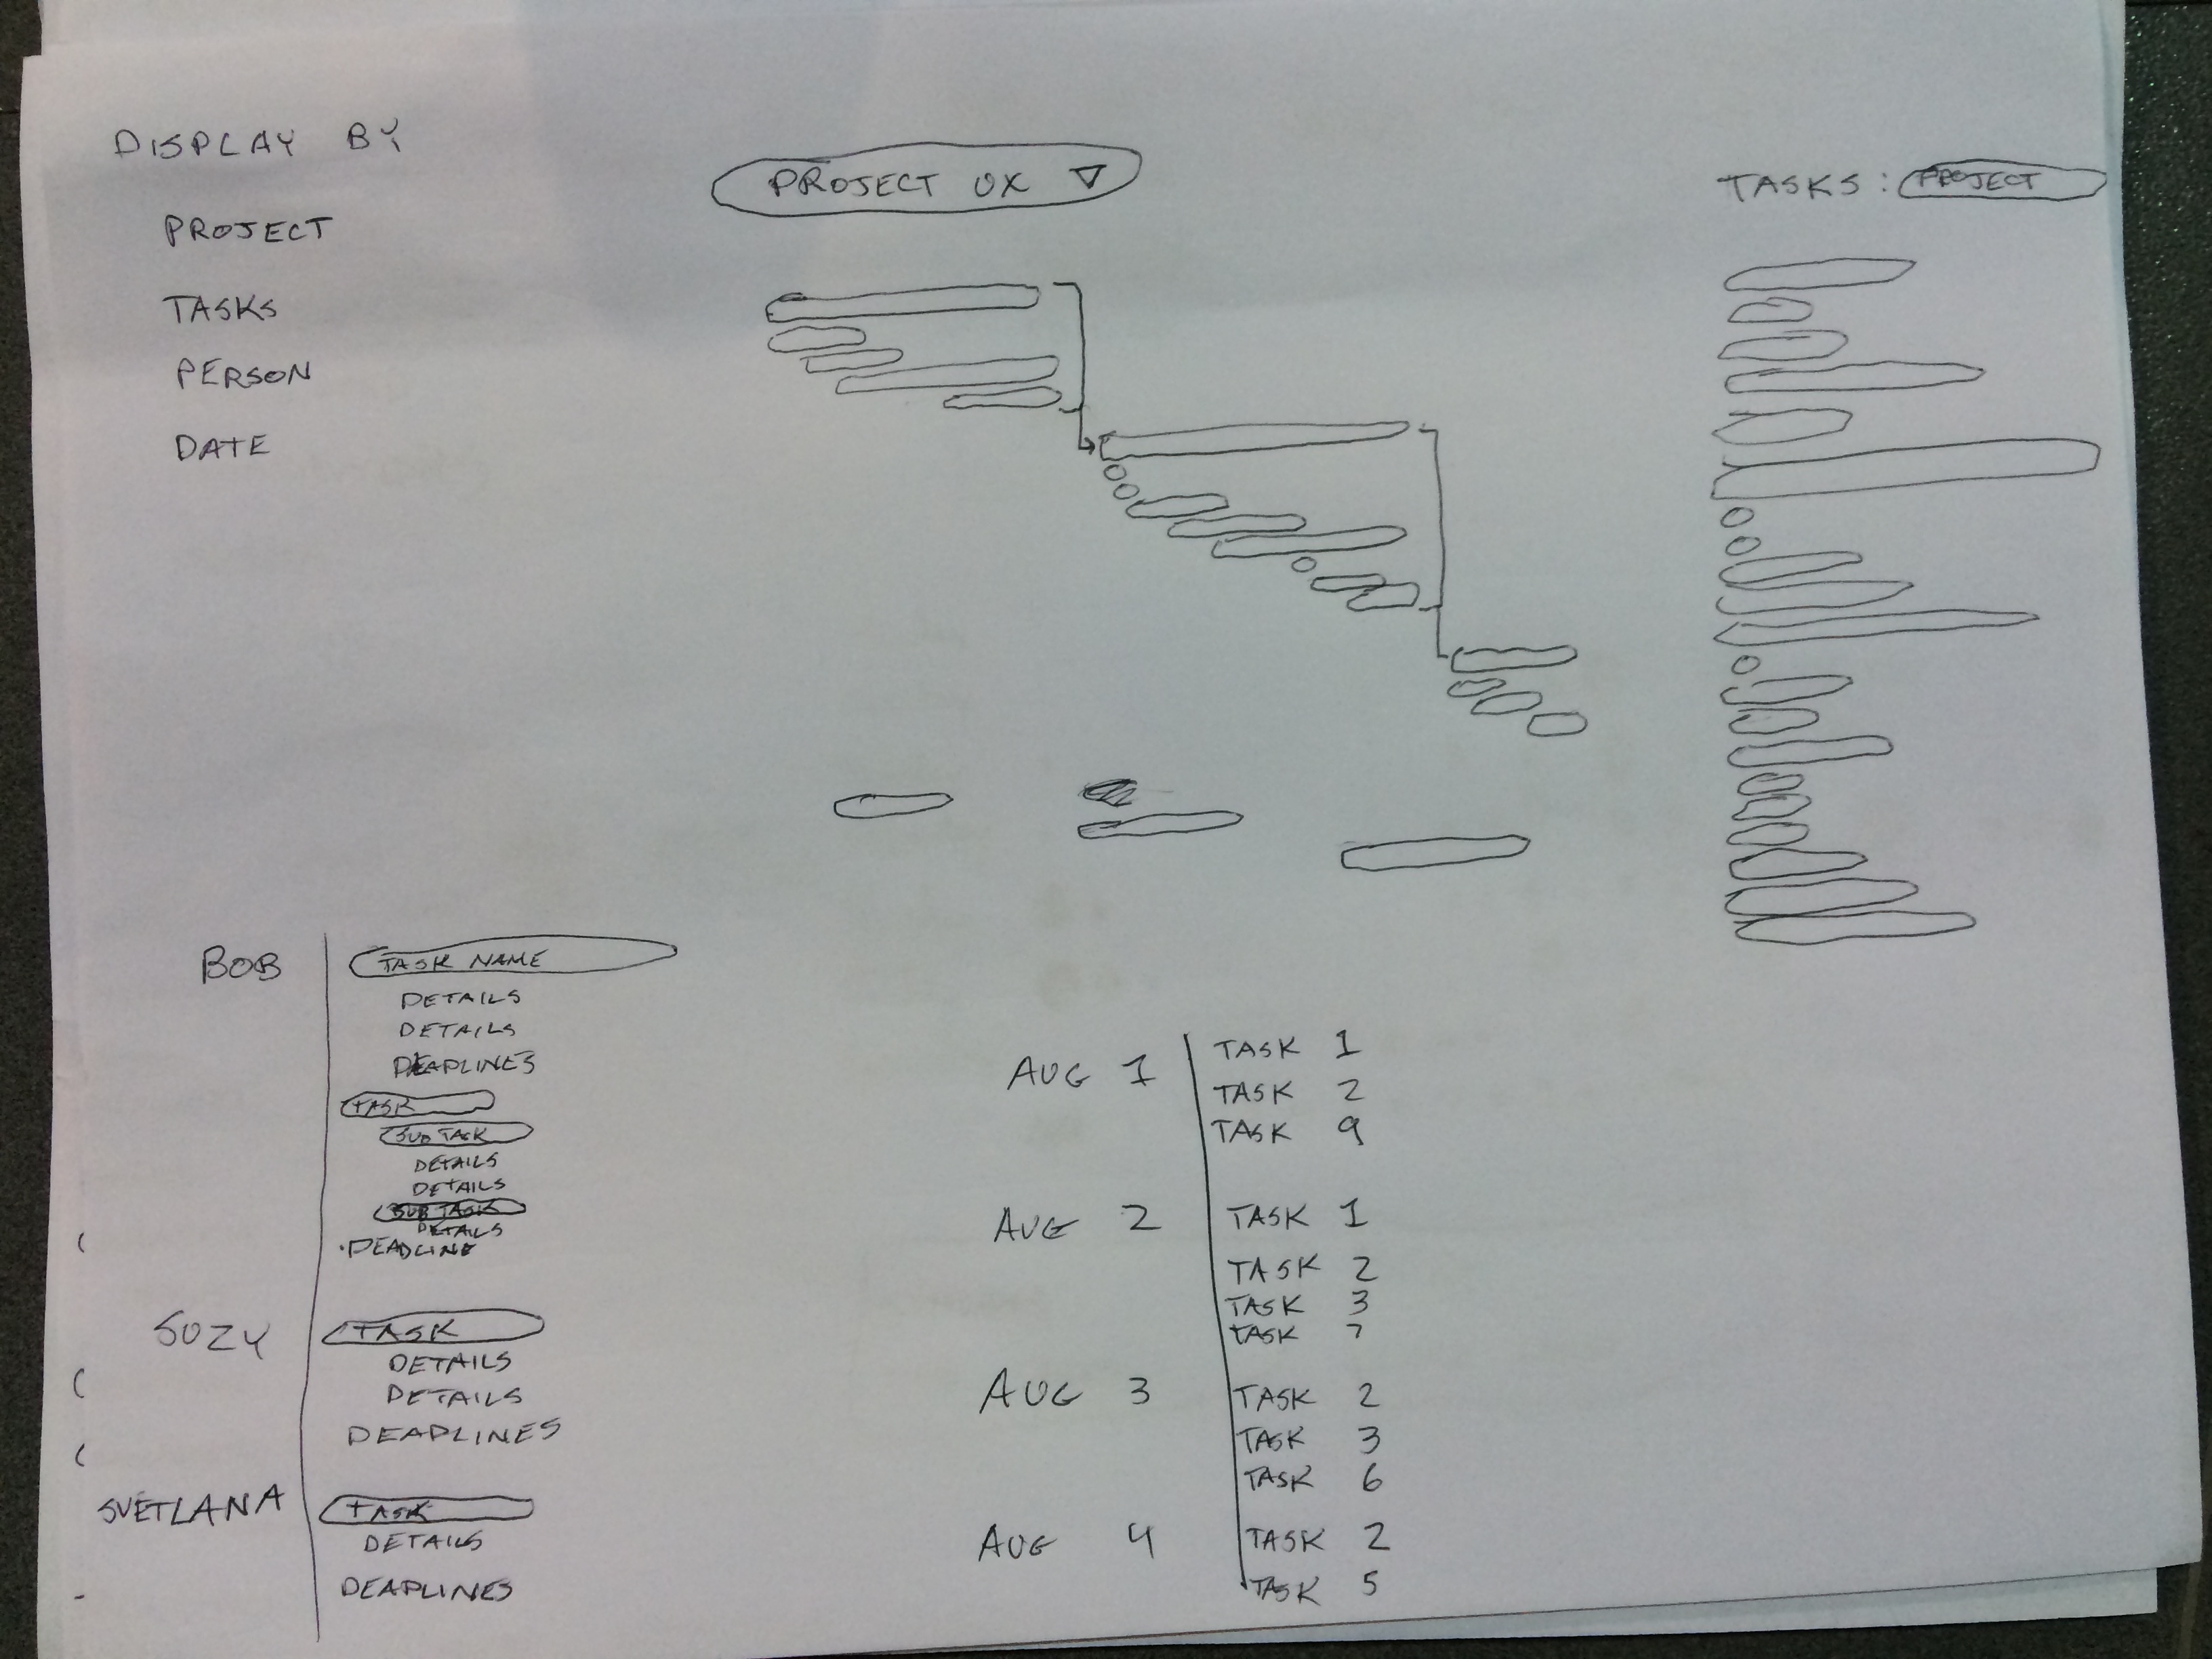 DISPLAY BY
PROJECT
TASKS
PERSON
DATE
PROJECT UX
TASKS: PROJECT
BOB
TASK NAME
DETAILS
DETAILS
DEADLINES
TASK
SUB TASK
DETAILS
DETAILS
SUB TASK
DETAILS
DEADLINE
SUZY
TASK
DETAILS
DETAILS
DEADLINES
SVETLANA
TASK
DETAILS
DEADLINES
AUG 1
TASK 1
TASK 2
TASK 9
AUG 2
TASK 1
TASK 2
TASK 3
TASK 7
AUG 3
TASK 2
TASK 3
TASK 6
AUG 4
TASK 2
TASK 5